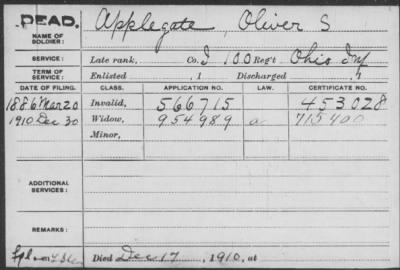 DEAD. Applegate, Oliver S
NAME OF SOLDIER:
SERVICE: Late rank, Co. I 100 Reg't Ohio Inf
TERM OF SERVICE: Enlisted , 1 Discharged , 1
DATE OF FILING. CLASS. APPLICATION NO. LAW. CERTIFICATE NO.
1886 Mar 20 Invalid, 566715 453028
1910 Dec 30 Widow, 954989 a 715400
Minor,
ADDITIONAL SERVICES:
REMARKS:
Died Dec 17, 1910, at